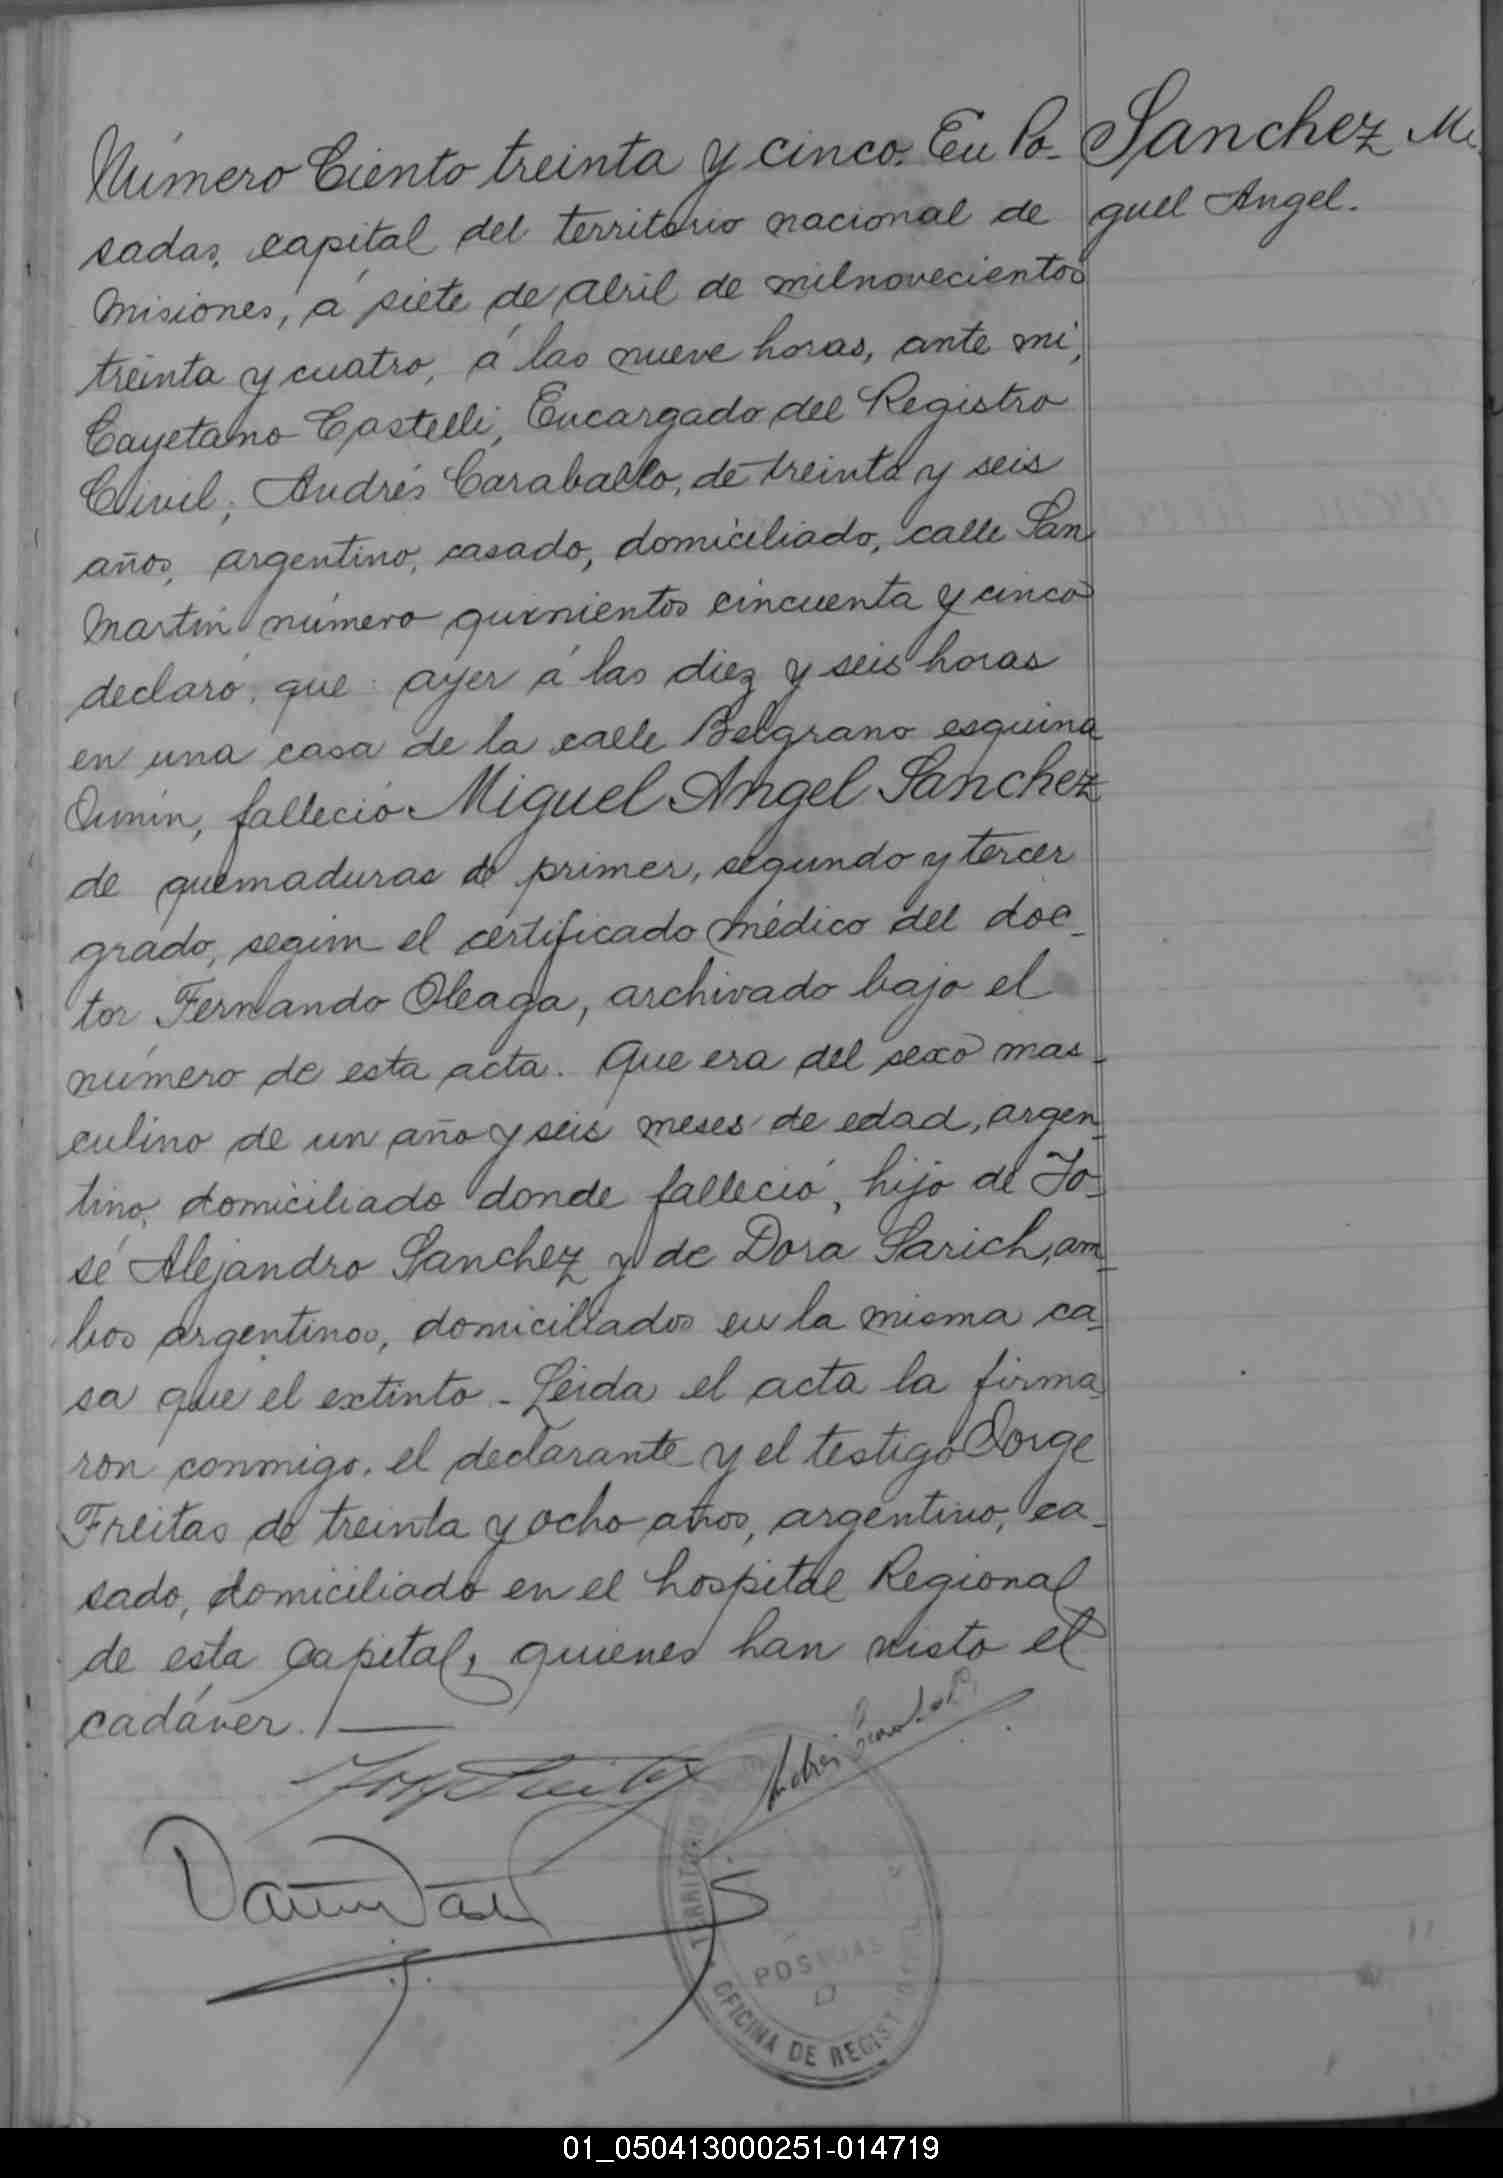 Número Ciento treinta y cinco. En Po-
sadas, capital del territorio nacional de
Misiones, á siete de Abril de milnovecientos
treinta y cuatro, á las nueve horas, ante mi,
Cayetano Castelli, Encargado del Registro
Civil; Andrés Caraballo, de treinta y seis
años, argentino, casado, domiciliado, calle San
Martin número quinientos cincuenta y cinco
declaró, que ayer á las diez y seis horas
en una casa de la calle Belgrano esquina
Junin, falleció Miguel Angel Sanchez
de quemaduras de primer, segundo y tercer
grado, segun el certificado médico del doc-
tor Fernando Oleaga, archivado bajo el
número de esta acta. Que era del sexo mas-
culino de un año y seis meses de edad, argen-
tino, domiciliado donde falleció, hijo de Jo-
sé Alejandro Sanchez y de Dora Sarich, am-
bos argentinos, domiciliados en la misma ca-
sa que el extinto - Leida el acta la firma
ron conmigo, el declarante y el testigo Jorge
Freitas de treinta y ocho años, argentino, ca-
sado, domiciliado en el hospital Regional
de esta Capital, quienes han visto el
cadáver.
Sanchez Mi-
guel Angel.
TERRITORIO
POSADAS
OFICINA DE REGIST
01_050413000251-014719